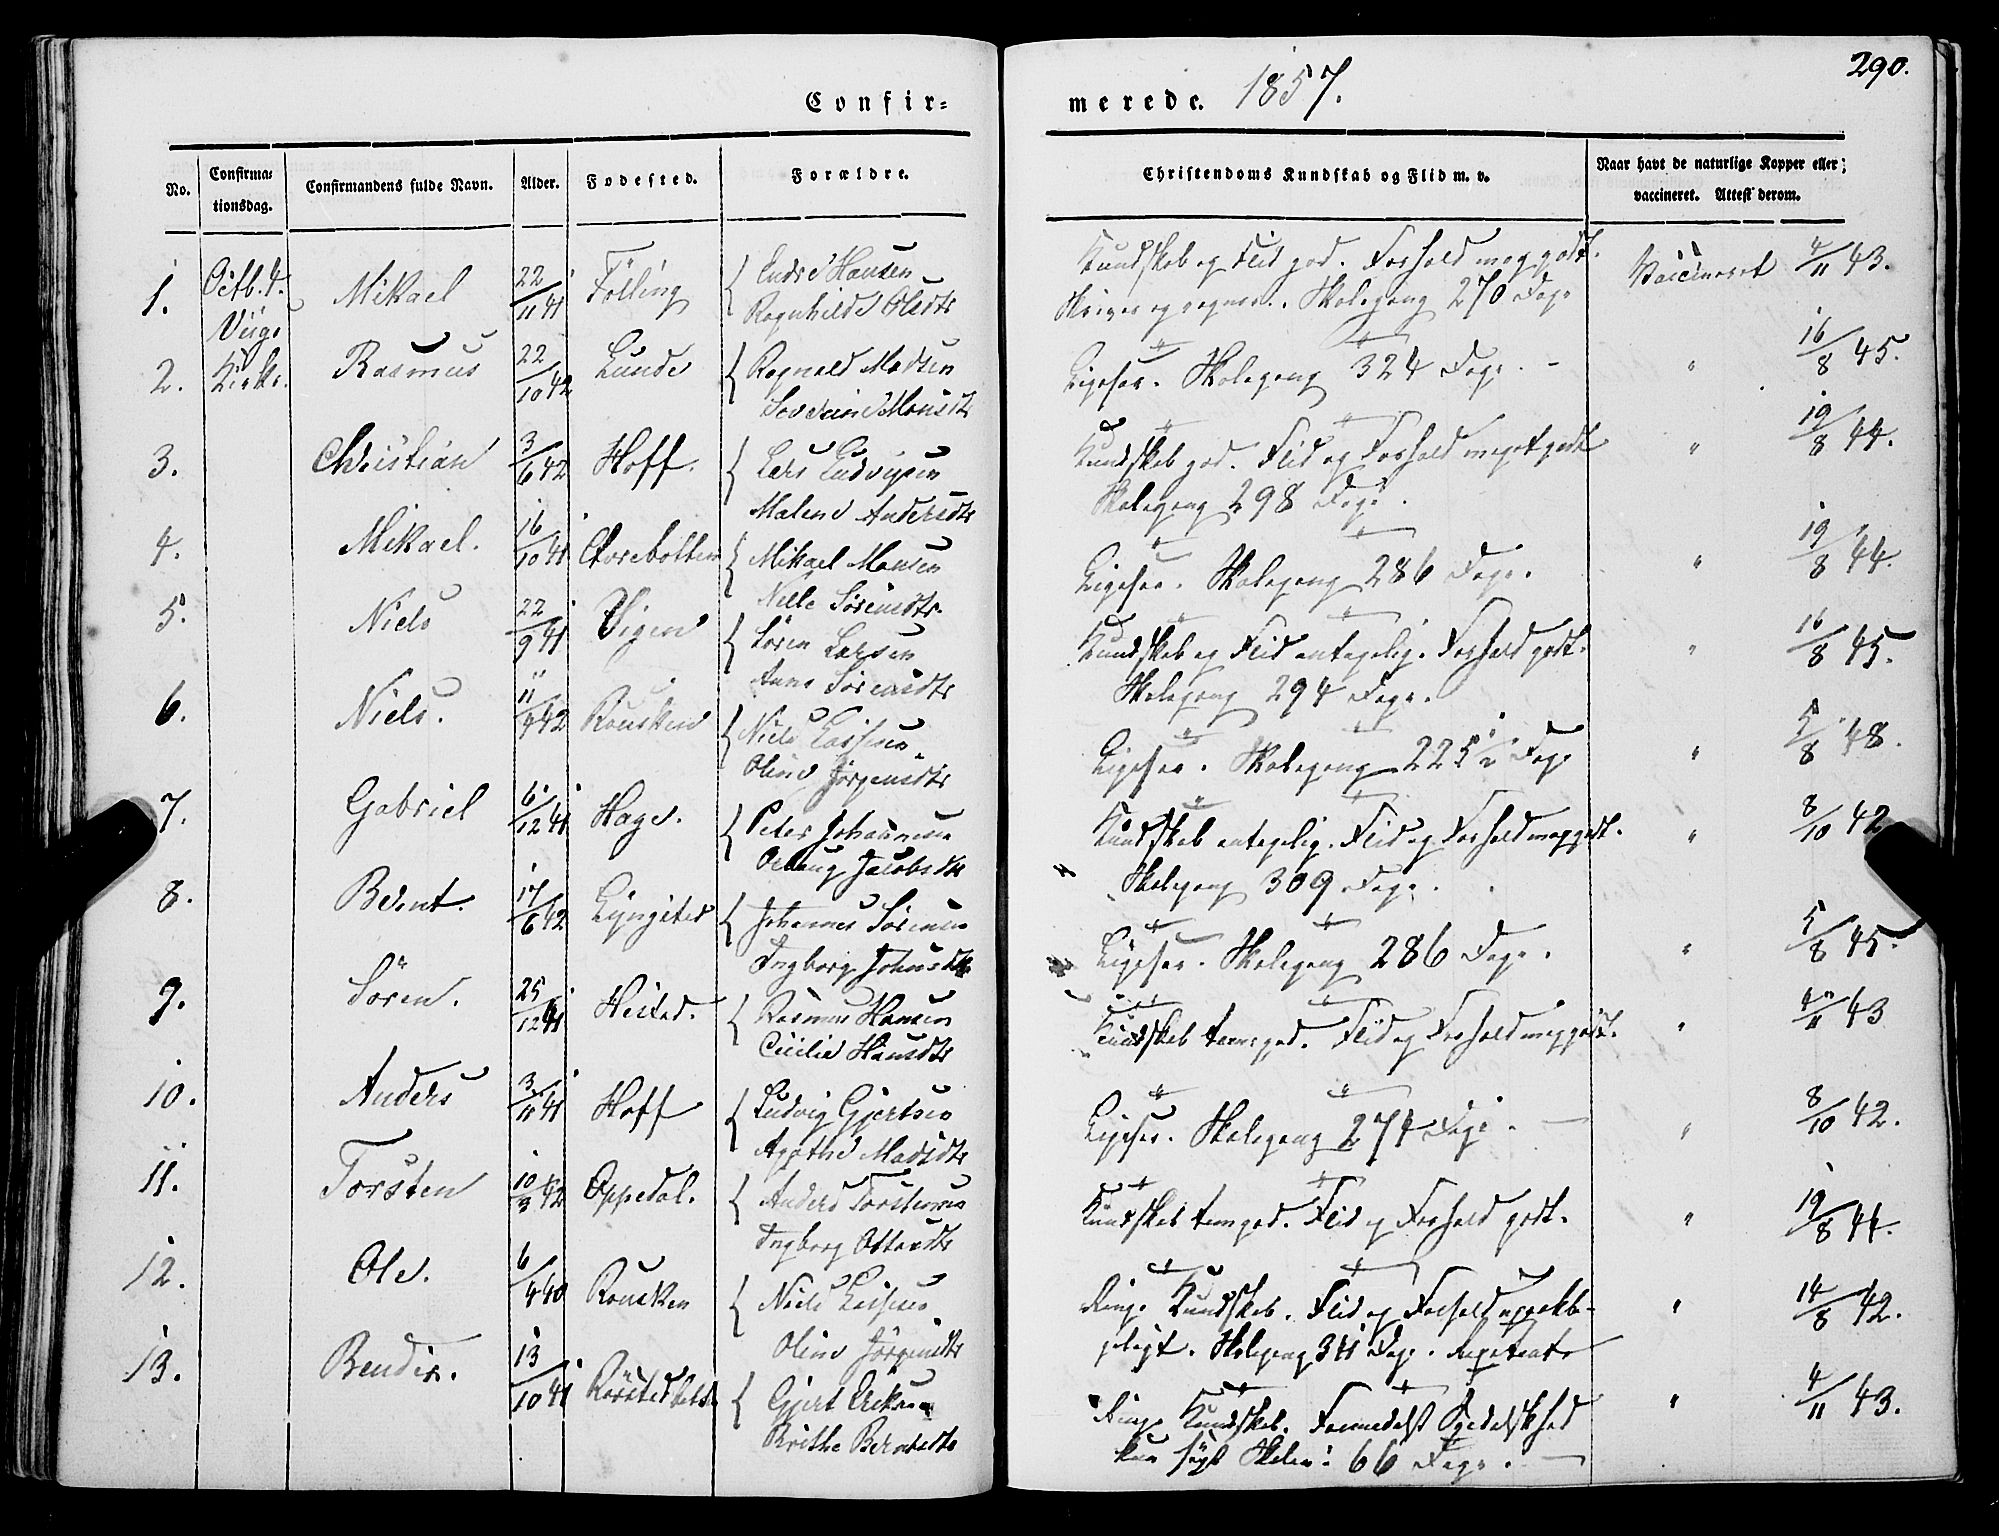 290.
Confir-
merede. 1857.
No.
Confirma-
tionsdag.
Confirmandens fulde Navn.
Alder.
Fodested.
Forældre.
Christendoms Kundskab og Flid m. v.
Naar havt de naturlige Kopper eller
vaccineret. Attest derom.
1. Octb. 4. Mikael 22/11 41 Tölling
Endre Hansen
Ragnhilde Olsdtr
Kundskab og Flid god. Forhold meg godt.
Skriver og regner. Skolegang 270 Dage
Vaccineret 4/11 43.
2. Kirke. Rasmus 22/10 42 Lunde
Ragnald Madsen
Monsdtr
Ligesaa. Skolegang 324 Dage. -
" 16/8 45.
3. Christian 3/6 42 Hoff.
Lars Ludvigsen
Malene Andersdtr
Kundskab god. Flid og Forhold meget godt
Skolegang 298 Dage.
" 19/8 44.
4. Mikael. 16/10 41
Mikael Monsen
Nille Sörensdtr.
Ligesaa. Skolegang 286 Dage.
" 19/8 44.
5. Niels 22/9 41 Vigen
Sören Larsen
Anne Sörensdtr
Kundskab og Flid antagelig. Forhold godt.
Skolegang 294 Dage.
" 16/8 45.
6. Niels. 11/4 42 Rousken
Niels
Oline Jörgensdtr
Ligesaa. Skolegang 225 1/2 Dage
" 5/8 48.
7. Gabriel 6/12 41 Hage.
Peter Johannesen
Jacobsdtr
Kundskab antagelig. Flid og Forhold meg godt.
Skolegang 309 Dage.
" 8/10 42
8. Bernt. 17/6 42
Johannes Sörensen
Ingborg Johnsdtr
Ligesaa. Skolegang 286 Dage.
" 5/8 45.
9. Sören. 25/12 41 Hestad.
Rasmus Hansen
Cicilie Hansdtr
Kundskab temmegod. Flid og Forhold meg godt.
" 4/11 43
10. Anders 3/11 41 Hoff
Ludvig Gjertsen
Agathe Madsdtr
Ligesaa. Skolegang 274 Dage. -
" 8/10 42.
11. Torsten 10/3 42 Oppedal.
Anders Torstensen
Ingborg Ottersdtr
Kundskab temgod. Flid og Forhold godt.
" 19/8 44.
12. Ole. 6/4 40 Rousken
Niels
Oline Jörgensdtr
Ringe Kundskab. Flid og Forhold uprokla-
geligt. Skolegang 311 Dage.
" 14/8 42.
13. Bendix. 13/10 41
Gjert
Brithe Berntsdtr
Ringe Kundskab.
kun søgt Skolen: 66 Dage. -
" 4/11 43.